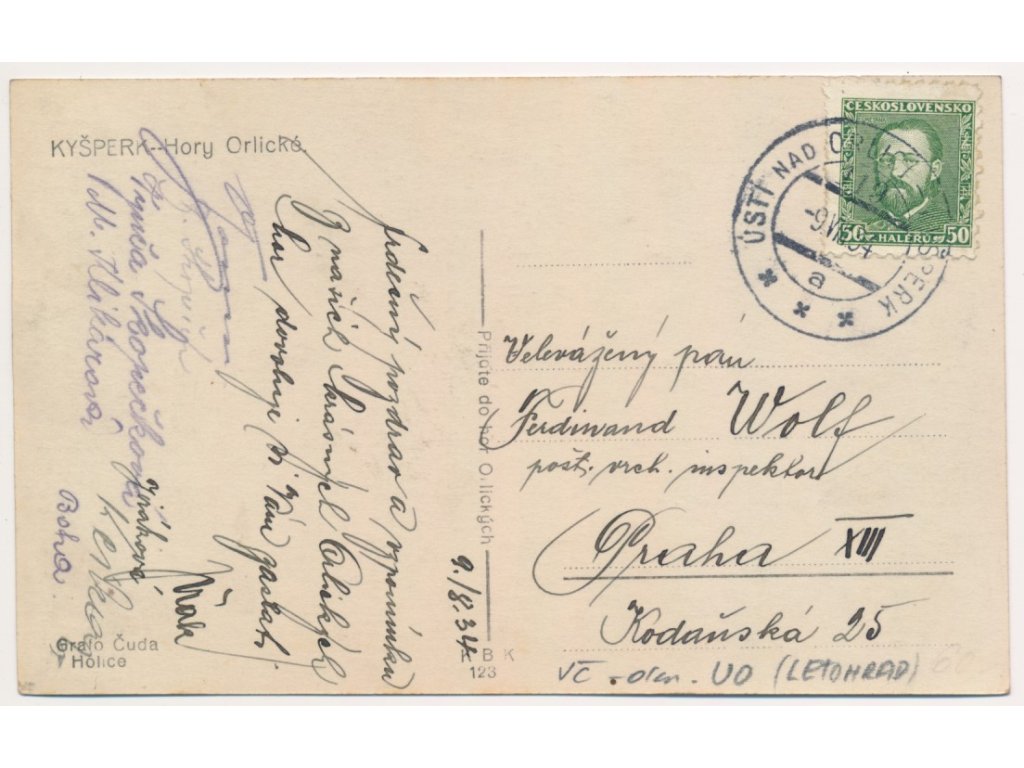 KYŠPERK--Hory Orlické.
Srdečný pozdrav a vzpomínku
z našich krásných Orlických
hor, dovoluji si Vám zaslat.
Boh. Hlibárova
Bořva.
9./8.34
Grafo Čuda
Holice
Přijďte do hor O.lických
BK
123
ČESKOSLOVENSKO
50 HALÉŘŮ 50
ÚSTÍ NAD ORLICÍ
KYŠPERK
a
Velevážený pán
Ferdinand Wolf
pošt. vrch. inspektor
Praha XIII
Kodaňská 25
VČ - okr. UO (LETOHRAD)